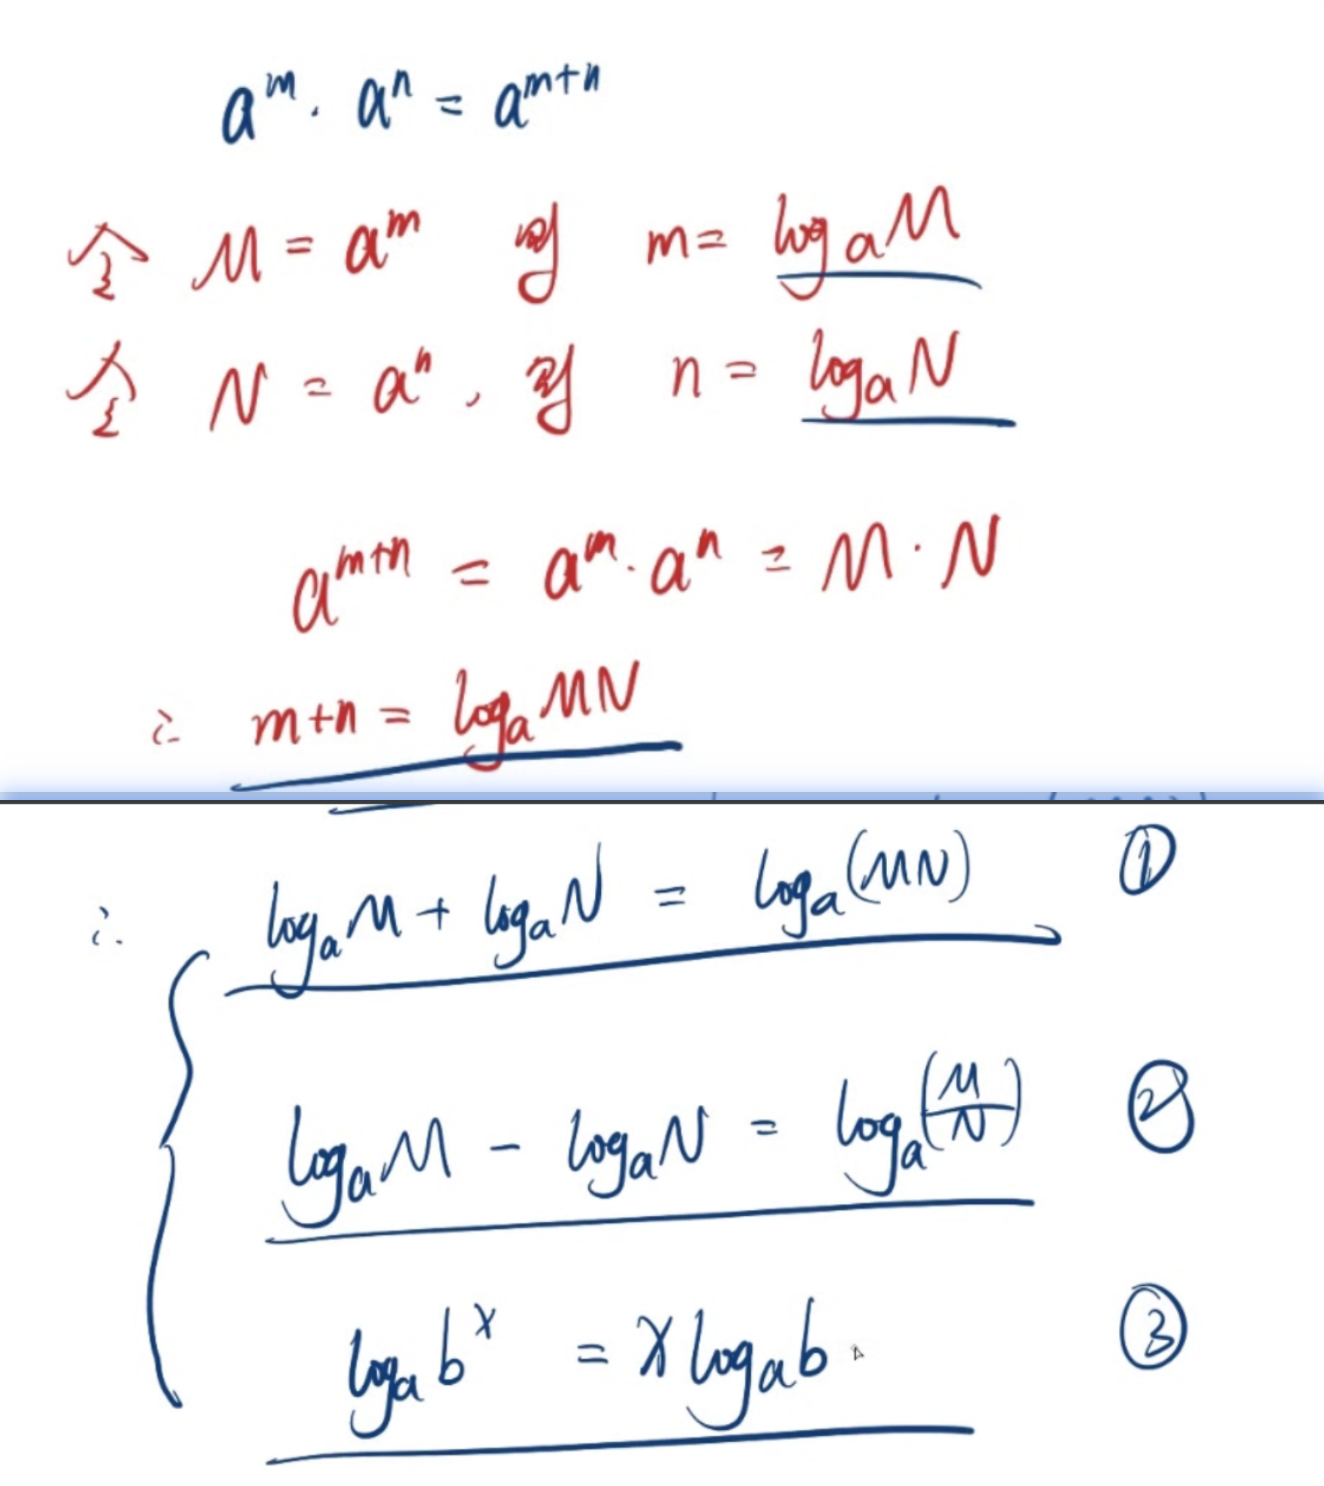 aᵐ · aⁿ = aᵐ⁺ⁿ
令 M = aᵐ 则 m = logₐM
令 N = aⁿ, 则 n = logₐN
aᵐ⁺ⁿ = aᵐ · aⁿ = M · N
∴ m+n = logₐMN
∴ logₐM + logₐN = logₐ(MN) ①
logₐM - logₐN = logₐ(M/N) ②
logₐbˣ = x logₐb ③